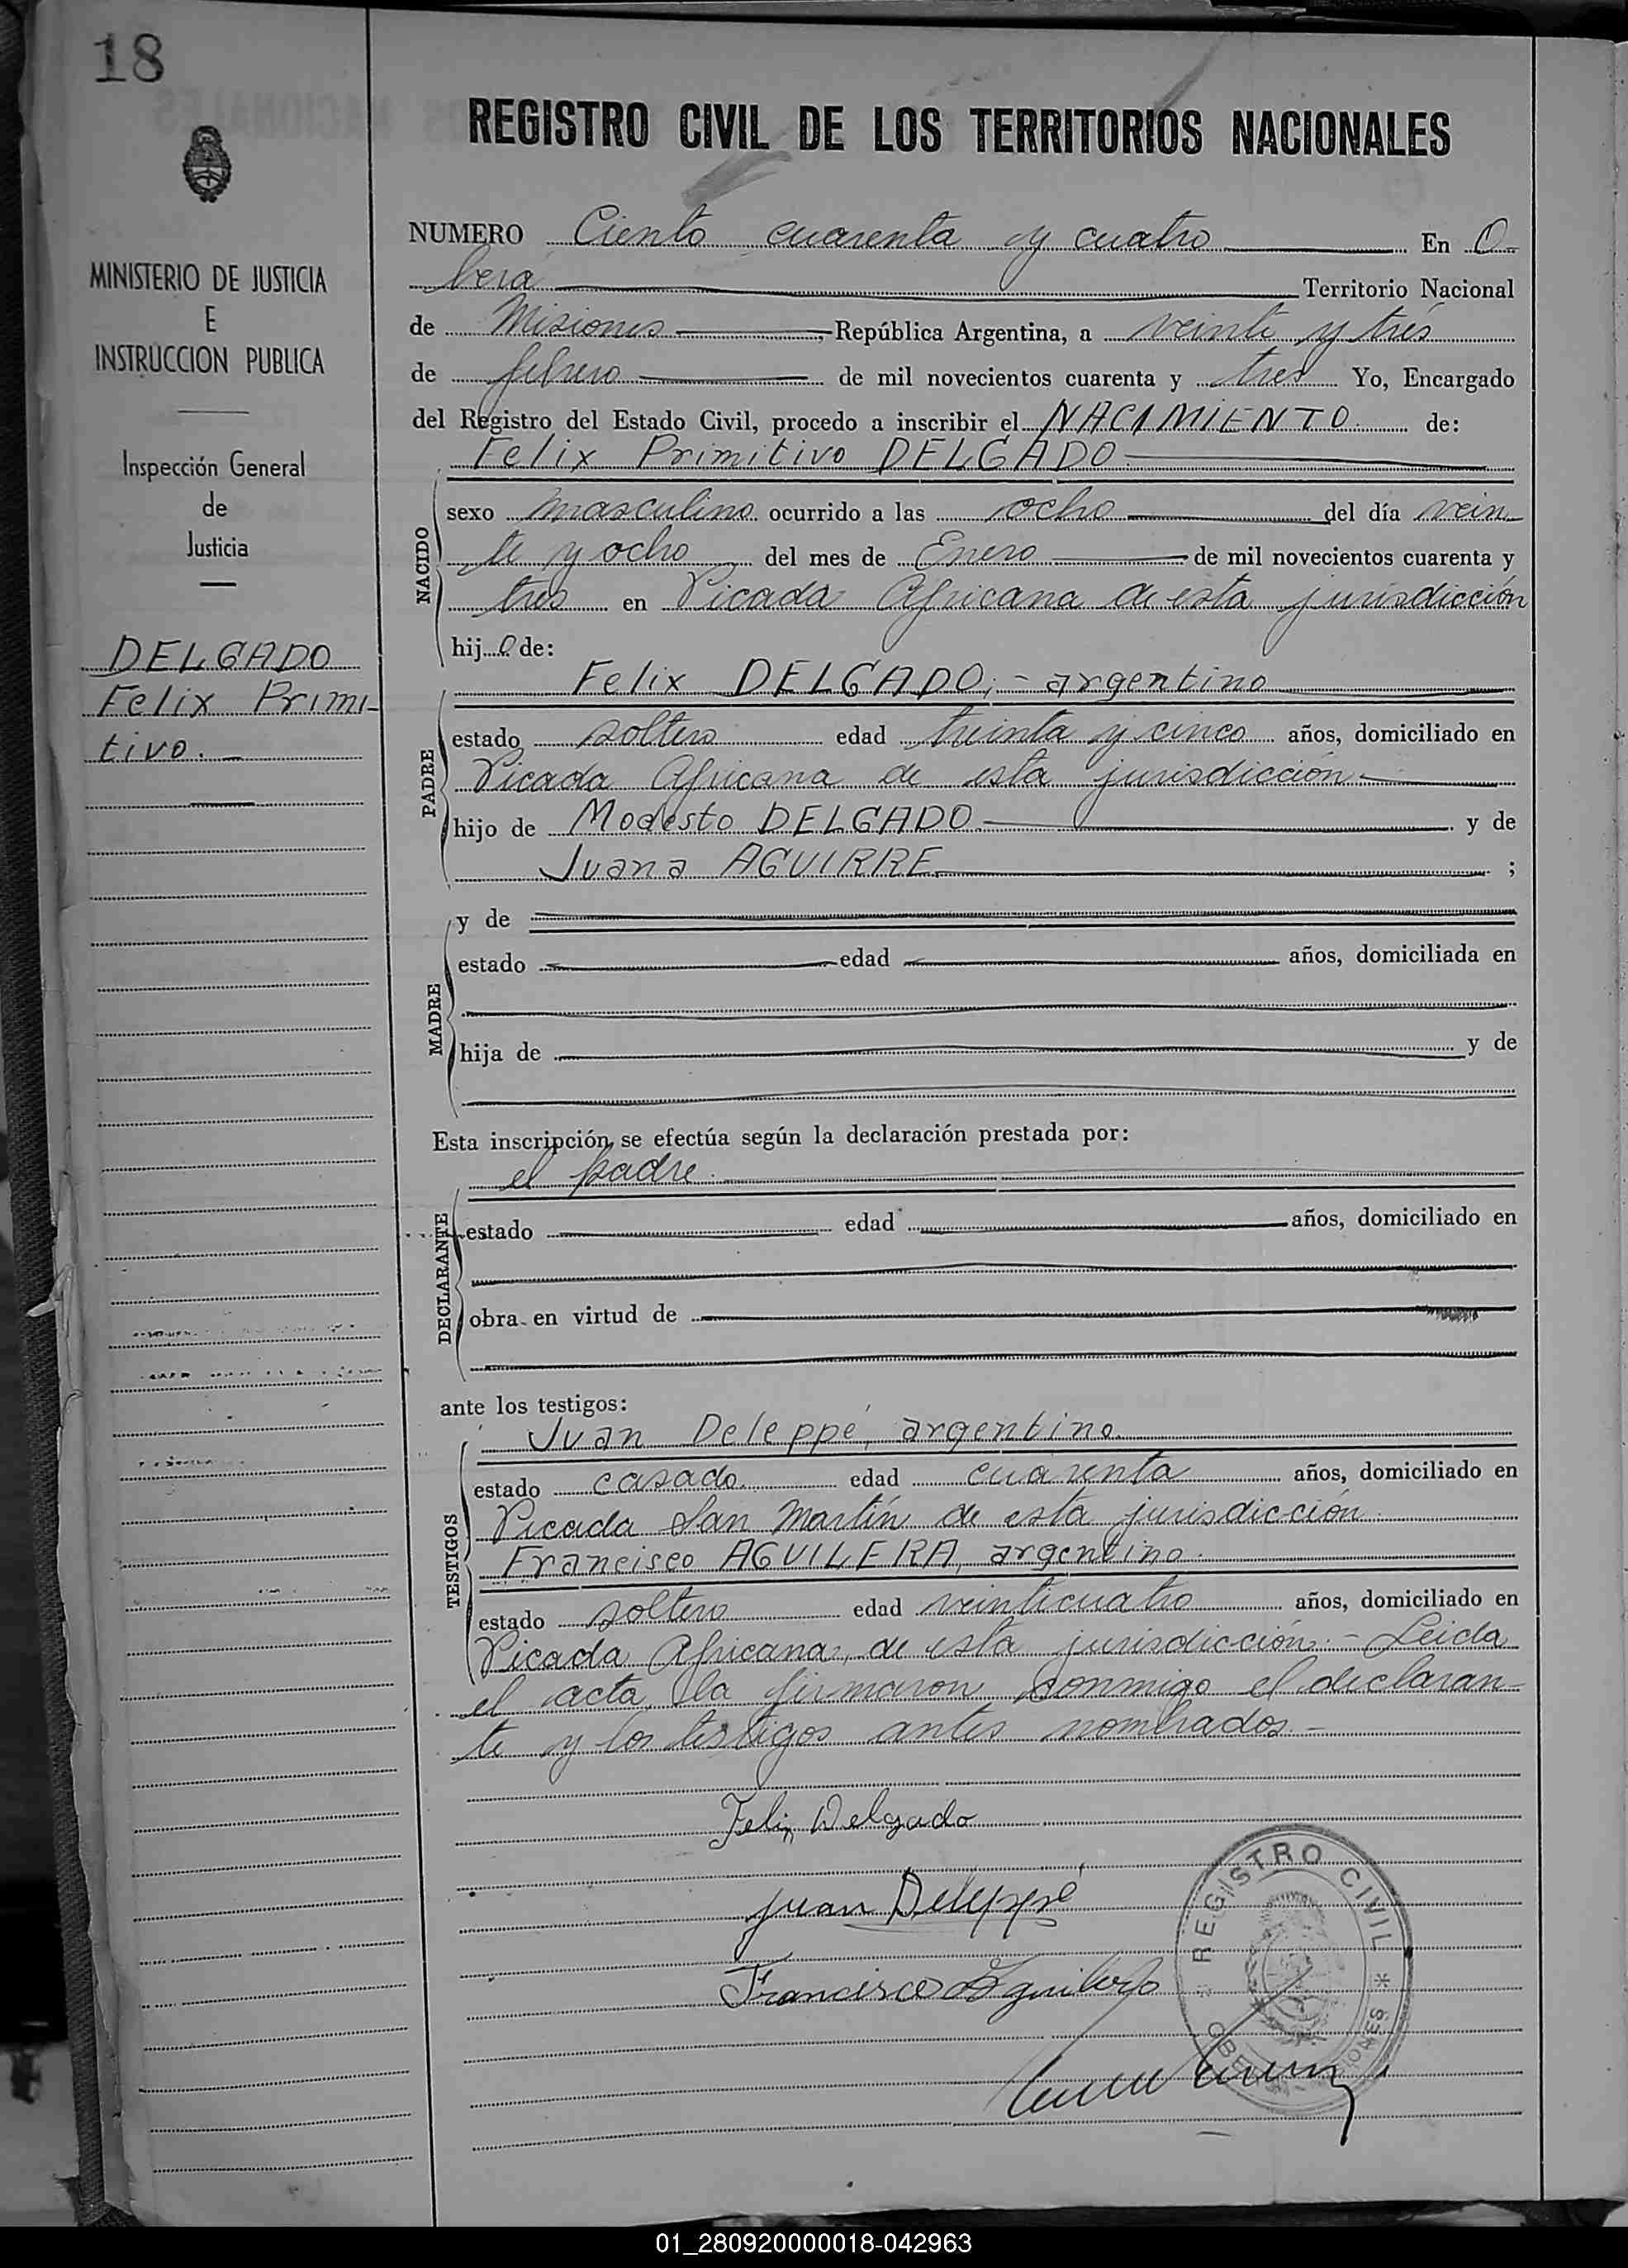 18
MINISTERIO DE JUSTICIA
E
INSTRUCCION PUBLICA
Inspección General
de
Justicia
DELGADO
Felix Primi-
tivo.-
REGISTRO CIVIL DE LOS TERRITORIOS NACIONALES
NUMERO Ciento cuarenta y cuatro En O
berá Territorio Nacional
de Misiones, República Argentina, a veinte y tres
de febrero de mil novecientos cuarenta y tres Yo, Encargado
del Registro del Estado Civil, procedo a inscribir el NACIMIENTO de:
Felix Primitivo DELGADO
NACIDO
sexo masculino ocurrido a las ocho del día vein
te y ocho del mes de Enero de mil novecientos cuarenta y
tres en Picada Africana de esta jurisdicción
hijo de:
PADRE
Felix DELGADO;- argentino
estado soltero edad treinta y cinco años, domiciliado en
Picada Africana de esta jurisdicción
hijo de Modesto DELGADO y de
Juana AGUIRRE ;
MADRE
y de
estado edad años, domiciliada en
hija de y de
Esta inscripción, se efectúa según la declaración prestada por:
el padre
DECLARANTE
estado edad años, domiciliado en
obra en virtud de
ante los testigos:
TESTIGOS
Juan Deleppé, argentino
estado casado edad cuarenta años, domiciliado en
Picada San Martín de esta jurisdicción
Francisco AGUILERA, argentino.
estado soltero edad veinticuatro años, domiciliado en
Picada Africana, de esta jurisdicción.- Leida
el acta la firmaron conmigo el declaran-
te y los testigos antes nombrados.-
Felix Delgado
Juan Deleppé
Francisco Aguilera
REGISTRO CIVIL
OBERÁ MISIONES
01_280920000018-042963